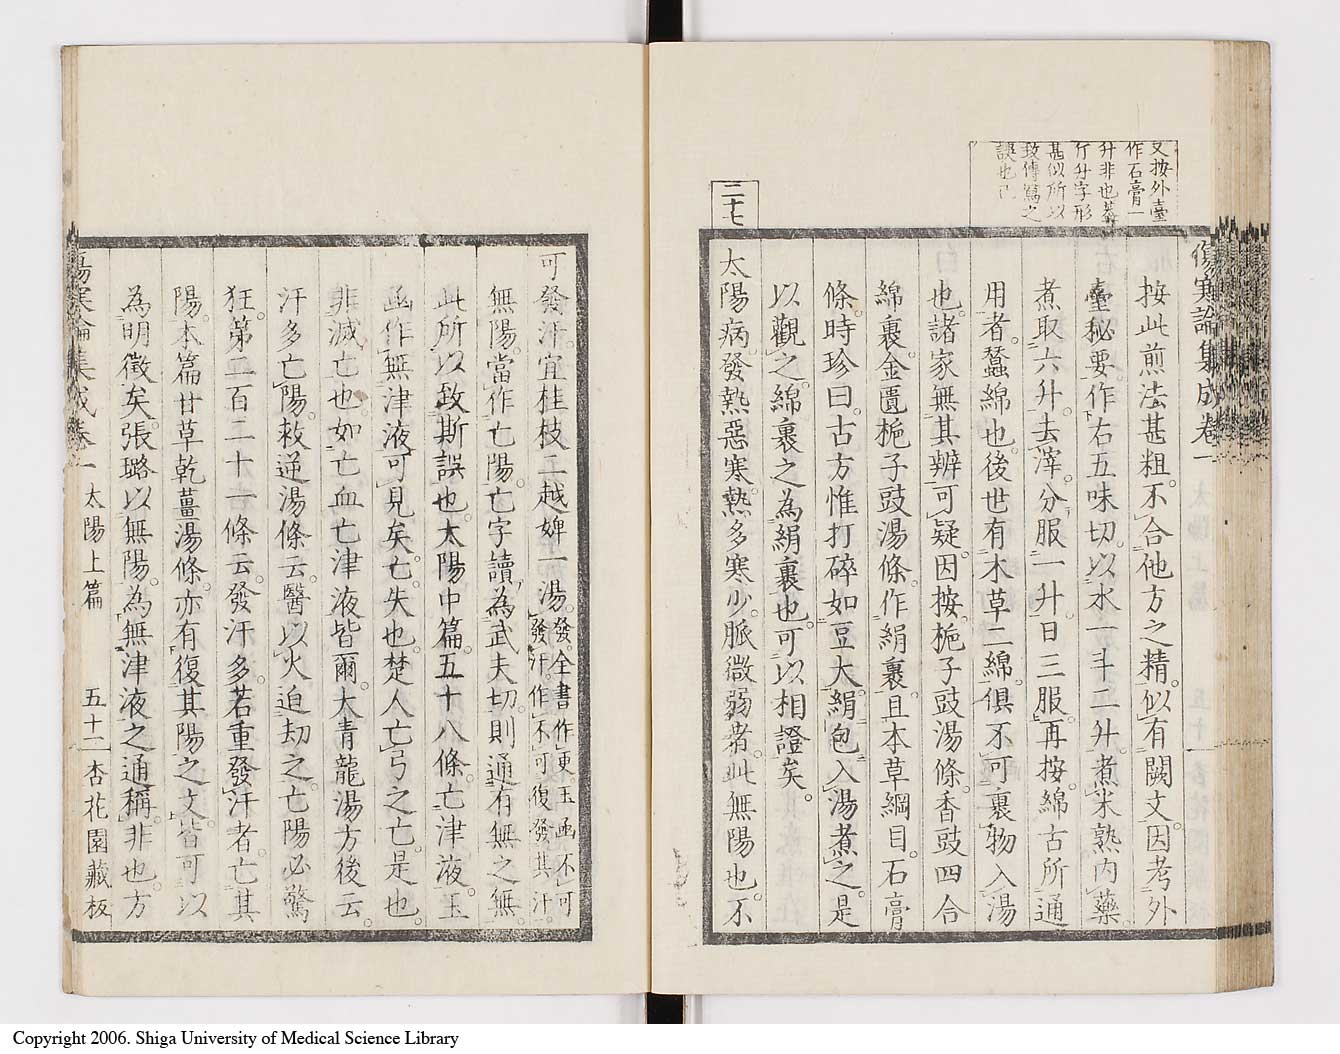 又按外臺
作石膏一
升非也蓋
斤升字形
甚似所以
致傳寫之
誤也已
傷寒論集成卷一
按此煎法甚粗。不合他方之精。似有闕文。因考外
臺秘要。作右五味切。以水一斗二升。煮米熟。内藥。
煮取六升。去滓。分服一升。日三服。再按。綿。古所通
用者。蠶綿也。後世有木草二綿。俱不可裹物入湯
也。諸家無其辨。可疑。因按。梔子豉湯條。香豉四合
綿裹。金匱梔子豉湯條。作絹裹。且本草綱目。石膏
條。時珍曰。古方惟打碎如豆大。絹包入湯煮之。是
以觀之。綿裹之為絹裹也。可以相證矣。
二十七
太陽病。發熱惡寒。熱多寒少。脈微弱者。此無陽也。不
可發汗。宜桂枝二越婢一湯。
發。全書作更。玉函不可
發汗。作不可復發其汗。
無陽。當作亡陽。亡字讀為武夫切。則通有無之無。
此所以致斯誤也。太陽中篇。五十八條。亡津液。玉
函作無津液。可見矣。亡。失也。楚人亡弓之亡。是也。
非滅亡也。如亡血亡津液皆爾。大青龍湯方後云。
汗多亡陽。救逆湯條云。醫以火迫劫之。亡陽必驚
狂。第二百二十一條云。發汗多。若重發汗者。亡其
陽。本篇甘草乾薑湯條。亦有復其陽之文。皆可以
為明徵矣。張璐以無陽。為無津液之通稱。非也。方
傷寒論集成卷一 太陽上篇 五十二 杏花園藏板
Copyright 2006. Shiga University of Medical Science Library